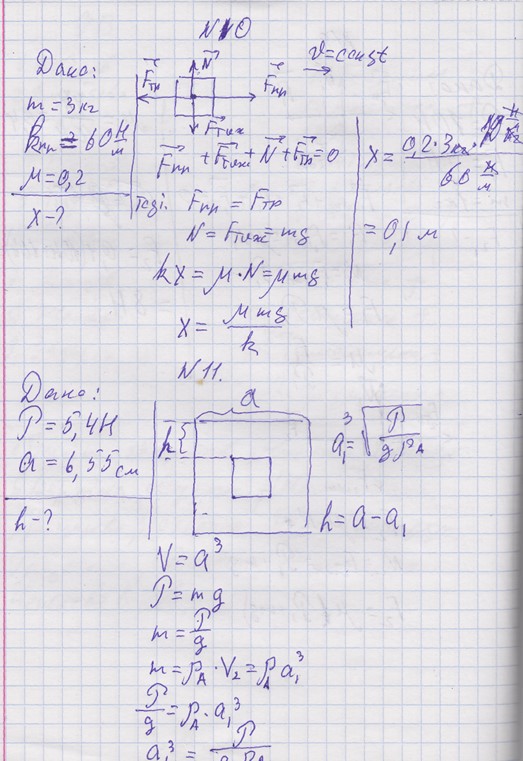 N 10
Дано:
m = 3 кг
kпр = 60 Н/м
μ = 0,2
x - ?
N
Fтр
Fпр
Fтяж
v = const
Fпр + Fтяж + N + Fтр = 0
Тоді: Fпр = Fтр
N = Fтяж = mg
kx = μ · N = μmg
x = μmg / k
x = 0,2 · 3кг · 10 Н/кг / 60 Н/м
= 0,1 м
N 11.
Дано:
P = 5,4 Н
a = 6,55 см
h - ?
a
h
a₁ = ³√(P / gρA)
h = a - a₁
V = a³
P = mg
m = P/g
m = ρA · V₂ = ρA a₁³
P/g = ρA · a₁³
a₁³ = P / gρA